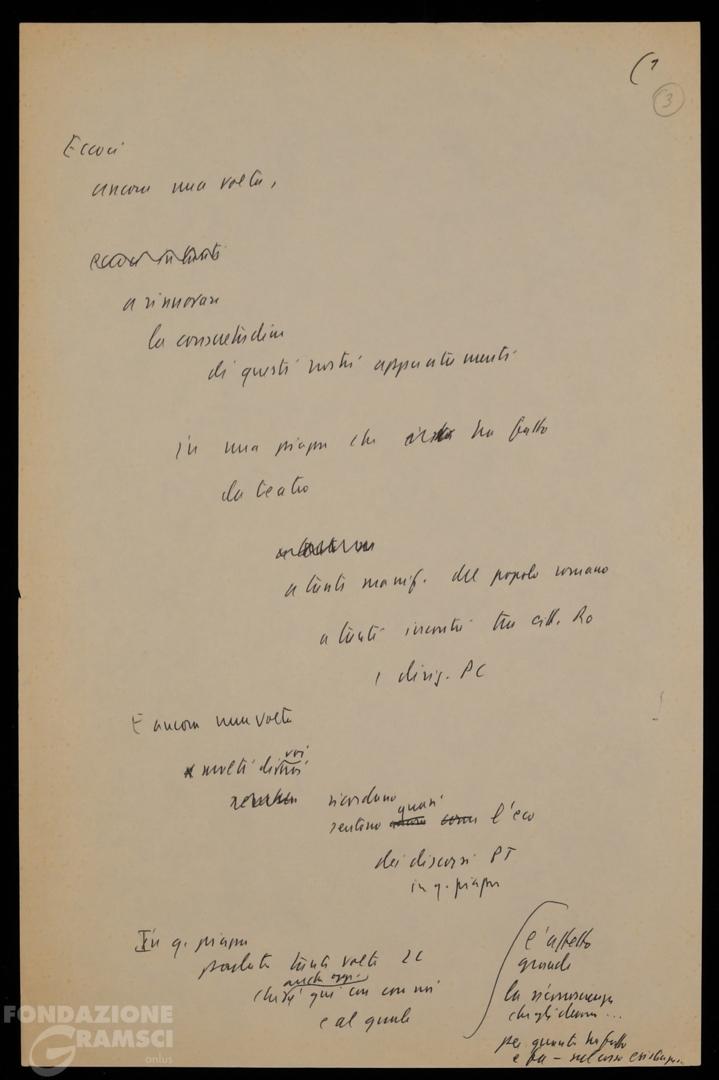 (1
3
Eccoci
ancora una volta,
a rinnovare
la consuetudine
di questi nostri appuntamenti
in una piazza che ha fatto
da teatro
a tanti manif. del popolo romano
a tanti incontri tra citt. Ro
e dirig. PC
E ancora una volta
molti di voi
ricordano
sentono quasi l'eco
dei discorsi PT
in q. piazza
In q. piazza
parlato tante volte LL
anche oggi
che è qui con noi
e al quale
l'affetto
grande
la riconoscenza
che gli diamo ...
per quanto ha fatto
e fa –
FONDAZIONE
GRAMSCI
onlus